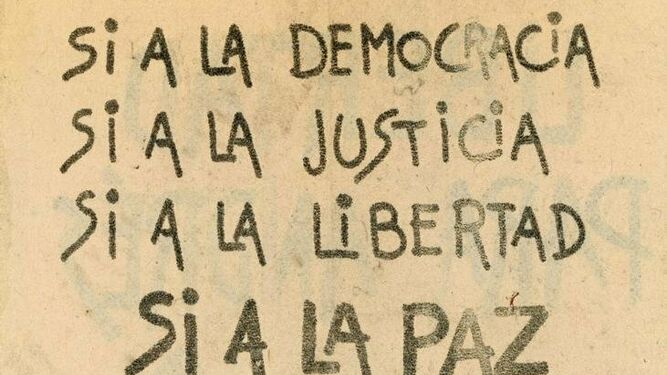 Si A LA DEMOCRACiA
Si A LA JUSTiCiA
Si A LA LiBERTAD
Si A LA PAZ